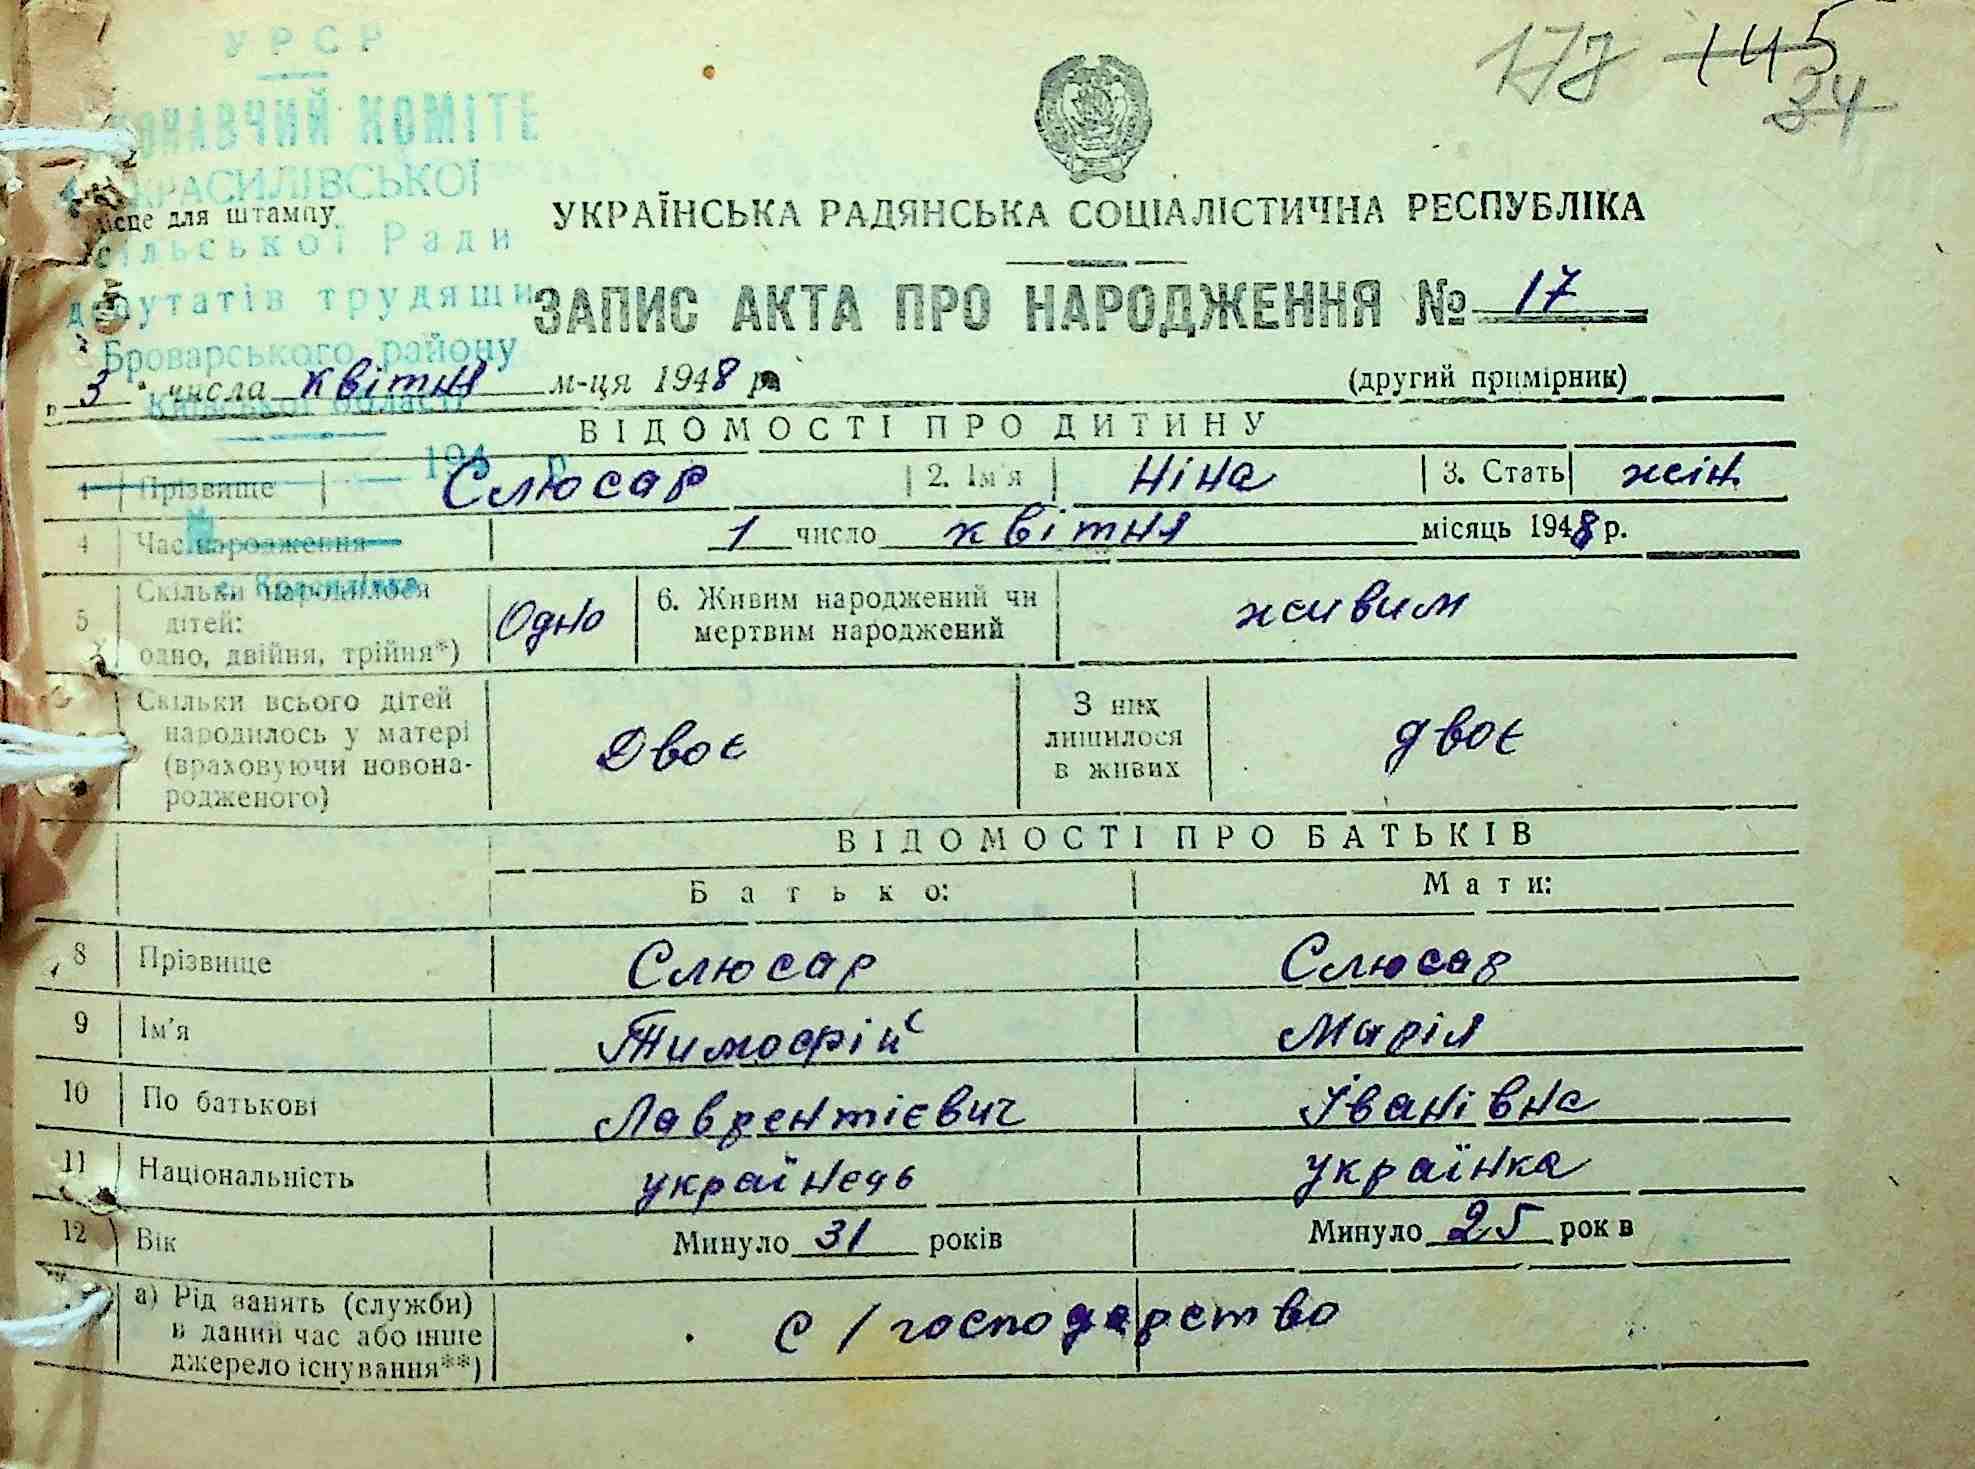 УРСР
КОМІТЕ
КРАСИЛІВСЬКОЇ
для штампу
сільської Ради
депутатів трудящи
Броварського району
Київської області
194 р.
с. Красилівка
177 145
34
УКРАЇНСЬКА РАДЯНСЬКА СОЦІАЛІСТИЧНА РЕСПУБЛІКА
ЗАПИС АКТА ПРО НАРОДЖЕННЯ № 17
„3" числа квітня м-ця 1948 р.
(другий примірник)
ВІДОМОСТІ ПРО ДИТИНУ
1 Прізвище Слюсар 2. Ім'я Ніна 3. Стать жін.
4 Час народження 1 число квітня місяць 1948 р.
5 Скільки народилося дітей: одно, двійня, трійня*) Одно 6. Живим народжений чи мертвим народжений живим
Скільки всього дітей народилось у матері (враховуючи новонародженого) Двоє З них лишилося в живих двоє
ВІДОМОСТІ ПРО БАТЬКІВ
Батько: Мати:
8 Прізвище Слюсар Слюсар
9 Ім'я Тимофій Марія
10 По батькові Лаврентієвич Іванівна
11 Національність українець українка
12 Вік Минуло 31 років Минуло 25 рок в
а) Рід занять (служби) в даний час або інше джерело існування**) с/господарство